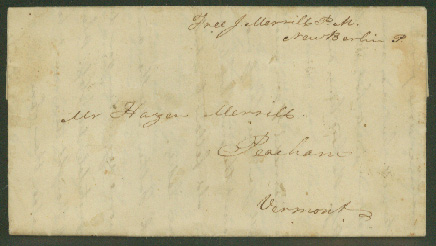 Free J Merrill P. M.
New Berlin P
Mr Hazen Merrill
Peacham
Vermont